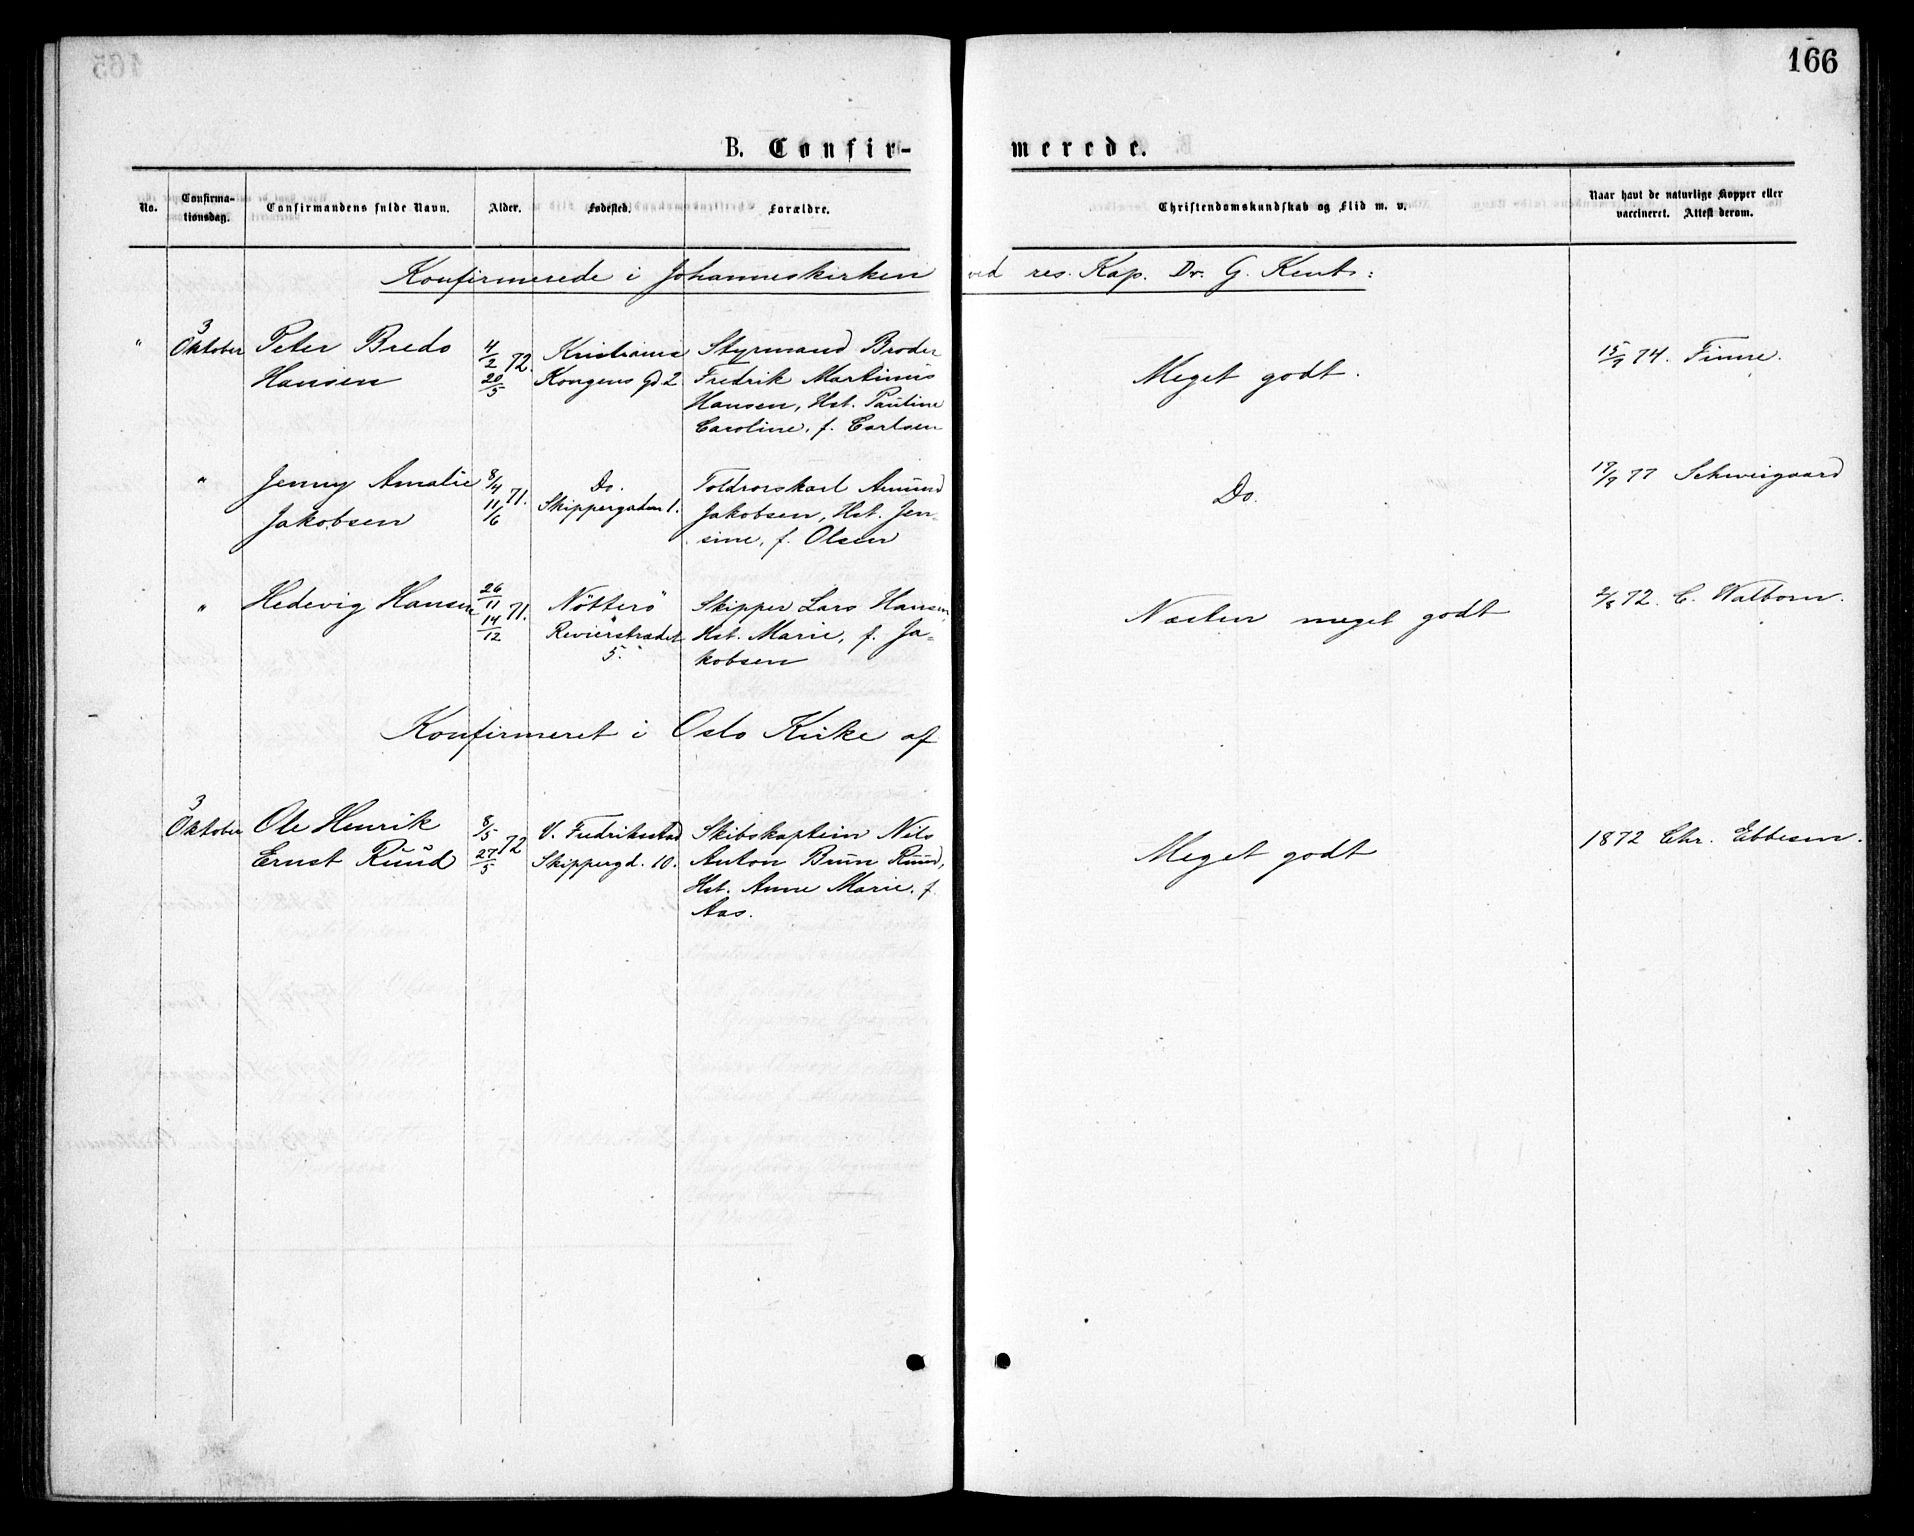 166
B. Confir-
merede.
No.
Confirma-
tionsdag.
Confirmandens fulde Navn.
Alder.
Fødested.
Forældre.
Christendomskundskab og Flid m. v.
Naar havt de naturlige Kopper eller
vaccineret. Attest derom.
Konfirmerede i Johanneskirken ved res. Kap. Dr. G. Kent:
" 3 Oktober
Peter Bredo
Hansen
4/2 72.
20/5
Kristiania
Kongens Gd 2
Styrmand Broder
Fredrik Martinus
Hansen, Hst. Pauline
Caroline, f. Carlsen
Meget godt.
15/9 74. Finne.
"
Jenny Amalie
Jakobsen
8/4 71.
11/6
Do.
Skippergaden 1.
Toldrorskarl Amund
Jakobsen, Hst. Jen-
sine, f. Olsen
Do.
17/9 77 Schweigaard
"
Hedevig Hansen
26/11 71.
14/12
Nötterö
Revierstrædet
5.
Skipper Lars Hansen,
Hst. Marie, f. Ja-
kobsen
Næsten meget godt
2/8 72. C. Walborn.
Konfirmeret i Oslo Kirke af
3
Oktober
Ole Henrik
Ernst Ruud
8/5 72
27/5
V. Fredriksstad
Skippergd. 10.
Skibskaptein Nils
Anton Brun Ruud,
Hst. Anne Marie, f.
Aas.
Meget godt
1872 Chr. Ebbesen.